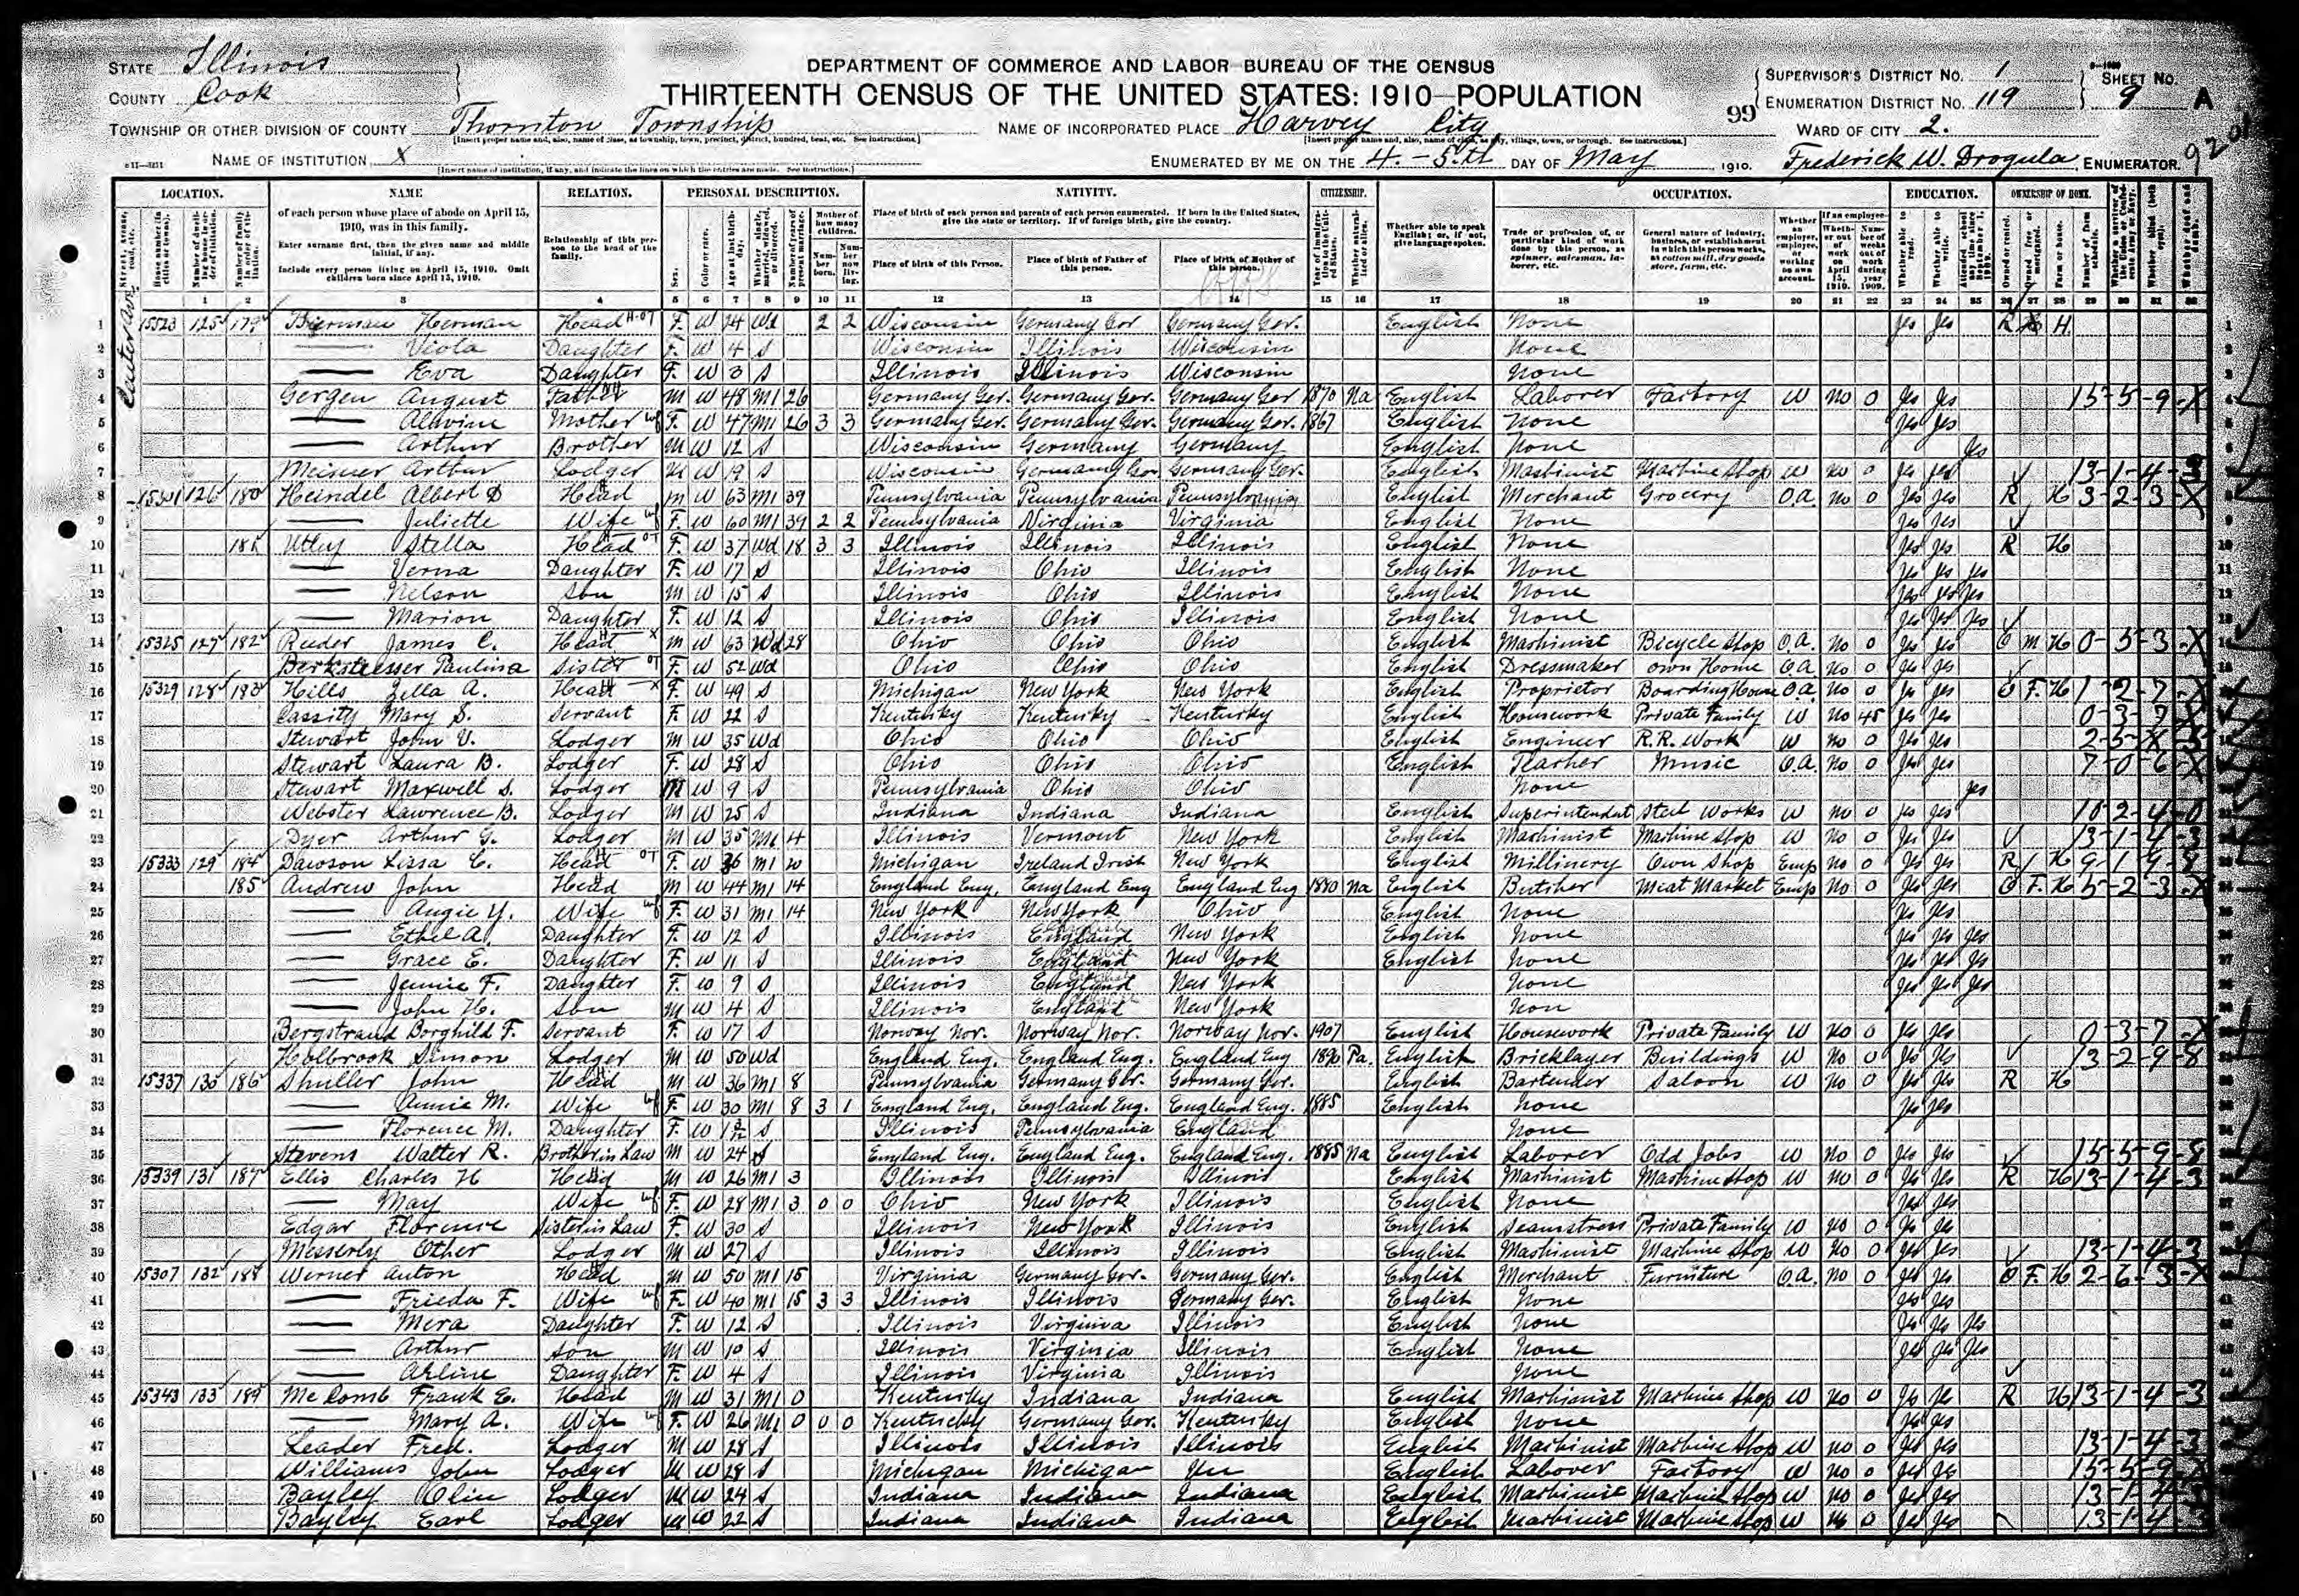 STATE Illinois
COUNTY Cook
DEPARTMENT OF COMMERCE AND LABOR—BUREAU OF THE CENSUS
THIRTEENTH CENSUS OF THE UNITED STATES: 1910—POPULATION
SUPERVISOR'S DISTRICT No. 1
ENUMERATION DISTRICT No. 119
SHEET No. 9 A
99
TOWNSHIP OR OTHER DIVISION OF COUNTY Thornton Township
NAME OF INCORPORATED PLACE Harvey City
WARD OF CITY 2.
NAME OF INSTITUTION X
ENUMERATED BY ME ON THE 4.-5.th DAY OF May, 1910. Frederick W. Drogula, ENUMERATOR.
LOCATION. NAME RELATION. PERSONAL DESCRIPTION. NATIVITY. CITIZENSHIP. OCCUPATION. EDUCATION. OWNERSHIP OF HOME.
of each person whose place of abode on April 15, 1910, was in this family.
Enter surname first, then the given name and middle initial, if any.
Include every person living on April 15, 1910. Omit children born since April 15, 1910.
Relationship of this person to the head of the family.
Place of birth of each person and parents of each person enumerated. If born in the United States, give the state or territory. If of foreign birth, give the country.
Place of birth of this Person. Place of birth of Father of this person. Place of birth of Mother of this person.
Whether able to speak English; or, if not, give language spoken.
1 2 3 4 5 6 7 8 9 10 11 12 13 14 15 16 17 18 19 20 21 22 23 24 25 26 27 28 29 30 31 32
1 15523 125 179 Bierman Herman Head F. W 24 Wd 2 2 Wisconsin Germany Ger Germany Ger. English None yes yes R H.
2 — Viola Daughter F. W 4 S Wisconsin Illinois Wisconsin None
3 — Eva Daughter F. W 3 S Illinois Illinois Wisconsin None
4 Gergen August Father M W 48 M1 26 Germany Ger. Germany Ger. Germany Ger 1870 Na English Laborer Factory W No 0 yes yes 15-5-9-X
5 — Mother F. W 47 M1 26 3 3 Germany Ger. Germany Ger. Germany Ger. 1867 English None yes yes
6 — Arthur Brother M W 12 S Wisconsin Germany Germany English None yes
7 Meisner Arthur Lodger M W 19 S Wisconsin Germany Ger. Germany Ger. English Machinist Machine Shop W No 0 yes yes 13-1-4-3
8 15301 126 180 Heindel Albert D Head M W 63 M1 39 Pennsylvania Pennsylvania Pennsylvania English Merchant Grocery O.A. No 0 yes yes R H 3-2-3-X
9 — Juliette Wife F. W 60 M1 39 2 2 Pennsylvania Virginia Virginia English None yes yes
10 181 Utley Stella Head F. W 37 Wd 18 3 3 Illinois Illinois Illinois English None yes yes R H
11 — Verna Daughter F. W 17 S Illinois Ohio Illinois English None yes yes yes
12 — Nelson Son M W 15 S Illinois Ohio Illinois English None yes yes yes
13 — Marion Daughter F. W 12 S Illinois Ohio Illinois English None yes yes yes
14 15325 127 182 Reeder James C. Head M W 63 Wd 28 Ohio Ohio Ohio English Machinist Bicycle Shop O.A. No 0 yes yes O M H 0-3-3-X
15 Paulina Sister F. W 52 Wd Ohio Ohio Ohio English Dressmaker own Home O.A. No 0 yes yes
16 15329 128 183 Hills Zella A. Head F. W 49 S Michigan New York New York English Proprietor Boarding House O.A. No 0 yes yes O F. H 1-2-7-X
17 Cassity Mary S. Servant F. W 22 S Kentucky Kentucky Kentucky English Housework Private Family W No 45 yes yes 0-3-7-X
18 Stewart John V. Lodger M W 35 Wd Ohio Ohio Ohio English Engineer R.R. Work W No 0 yes yes 2-5-X-5
19 Stewart Laura B. Lodger F. W 28 S Ohio Ohio Ohio English Teacher Music O.A. No 0 yes yes 7-0-6-X
20 Stewart Maxwell S. Lodger M W 9 S Pennsylvania Ohio Ohio None yes
21 Webster Lawrence B. Lodger M W 25 S Indiana Indiana Indiana English Superintendent Steel Works W No 0 yes yes 10-2-4-0
22 Dyer Arthur G. Lodger M W 35 M1 4 Illinois Vermont New York English Machinist Machine Shop W No 0 yes yes 13-1-4-3
23 15333 129 184 Dawson Lissa C. Head F. W 36 M1 Michigan Ireland Irish New York English Millinery Own Shop Emp No 0 yes yes R H 9-1-9-8
24 185 Andrew John Head M W 44 M1 14 England Eng. England Eng England Eng 1880 Na English Butcher Meat Market Emp No 0 yes yes O F. H 5-2-3-X
25 — Angie Y. Wife F. W 31 M1 14 New York New York Ohio English None yes yes
26 — Ethel A. Daughter F. W 12 S Illinois England New York English None yes yes yes
27 — Grace E. Daughter F. W 11 S Illinois England New York English None yes yes yes
28 — Jennie F. Daughter F. W 9 S Illinois England New York None yes yes yes
29 — John H. Son M W 4 S Illinois England New York Non
30 Bergstrand Borghild F. Servant F. W 17 S Norway Nor. Norway Nor. Norway Nor. 1907 English Housework Private Family W No 0 yes yes 0-3-7-X
31 Holbrook Simon Lodger M W 50 Wd England Eng. England Eng. England Eng 1890 Pa. English Bricklayer Buildings W No 0 yes yes 13-2-9-8
32 15337 130 186 Shuller John Head M W 36 M1 8 Pennsylvania Germany Ger. Germany Ger. English Bartender Saloon W No 0 yes yes R H
33 — Annie M. Wife F. W 30 M1 8 3 1 England Eng. England Eng. England Eng. 1885 English None yes yes
34 — Florence M. Daughter F. W 1 3/12 S Illinois Pennsylvania England None
35 Stevens Walter R. Brother in Law M W 24 S England Eng. England Eng. England Eng. 1885 Na English Laborer Odd Jobs W No 0 yes yes 15-5-9-8
36 15339 131 187 Ellis Charles H Head M W 26 M1 3 Illinois Illinois Illinois English Machinist Machine Shop W No 0 yes yes R H 13-1-4-3
37 — May Wife F. W 28 M1 3 0 0 Ohio New York Illinois English None yes yes
38 Edgar Florence Sister in Law F. W 30 S Illinois New York Illinois English Seamstress Private Family W yes 0 yes yes
39 Messerly Other Lodger M W 27 S Illinois Illinois Illinois English Machinist Machine Shop W No 0 yes yes 13-1-4-3
40 15307 132 188 Werner Anton Head M W 50 M1 15 Virginia Germany Ger. Germany Ger. English Merchant Furniture O.A. No 0 yes yes O F. H 2-6-3-X
41 — Frieda F. Wife F. W 40 M1 15 3 3 Illinois Illinois Germany Ger. English None yes yes
42 — Mera Daughter F. W 12 S Illinois Virginia Illinois English None yes yes yes
43 — Arthur Son M W 10 S Illinois Virginia Illinois English None yes yes yes
44 — Arline Daughter F. W 4 S Illinois Virginia Illinois None
45 15343 133 189 McComb Frank E. Head M W 31 M1 0 Kentucky Indiana Indiana English Machinist Machine Shop W No 0 yes yes R H 13-1-4-3
46 — Mary A. Wife F. W 26 M1 0 0 0 Kentucky Germany Ger. Kentucky English None yes yes
47 Leader Fred. Lodger M W 28 S Illinois Illinois Illinois English Machinist Machine Shop W No 0 yes yes 13-1-4-3
48 Williams John Lodger M W 28 S Michigan Michigan English Laborer Factory W No 0 yes yes 15-5-9-X
49 Bayley Olin Lodger M W 24 S Indiana Indiana Indiana English Machinist Machine Shop W No 0 yes yes 13-1-4-3
50 Bayley Earl Lodger M W 22 S Indiana Indiana Indiana English Machinist Machine Shop W No 0 yes yes 13-1-4-3